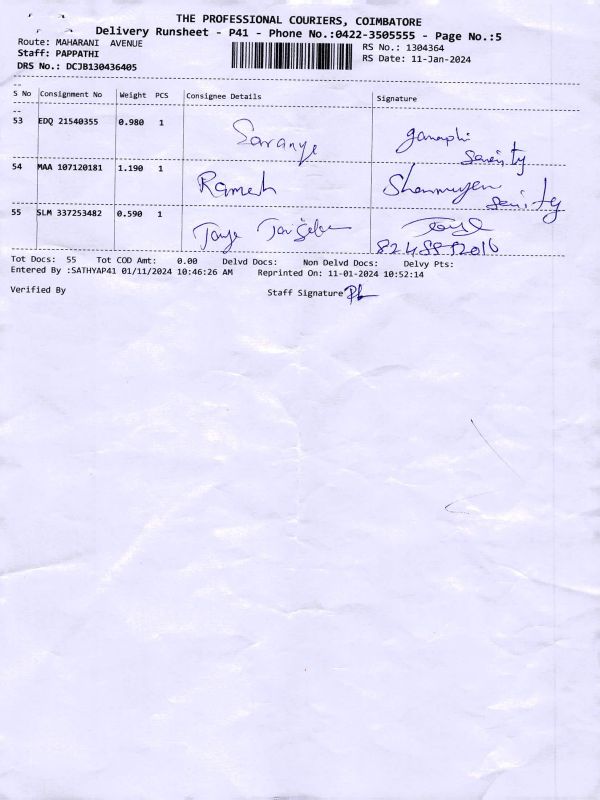 THE PROFESSIONAL COURIERS, COIMBATORE
Delivery Runsheet - P41 - Phone No.:0422-3505555 - Page No.:5
Route: MAHARANI AVENUE
RS No.: 1304364
Staff: PAPPATHI
RS Date: 11-Jan-2024
DRS No.: DCJB130436405
S No Consignment No Weight PCS Consignee Details Signature
53 EDQ 21540355 0.980 1 Saranya ganapthi
Security
54 MAA 107120181 1.190 1 Ramesh Shanmugan
Security
55 SLM 337253482 0.590 1
Tot Docs: 55 Tot COD Amt: 0.00 Delvd Docs: Non Delvd Docs: Delvy Pts:
Entered By :SATHYAP41 01/11/2024 10:46:26 AM Reprinted On: 11-01-2024 10:52:14
Verified By Staff Signature